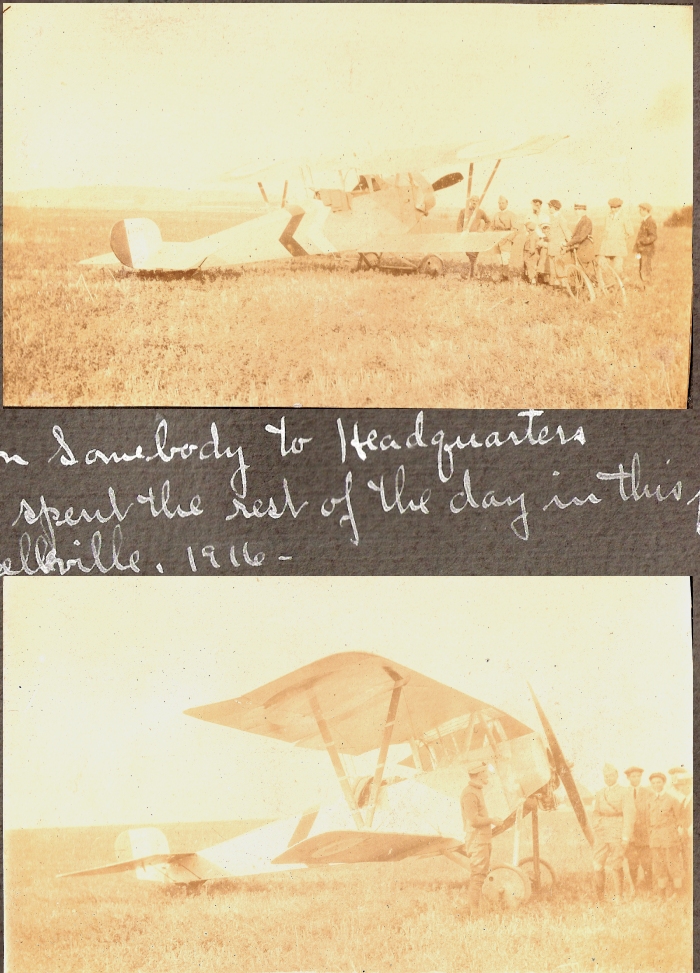 n Somebody to Headquarters
spent the rest of the day in this
ellville. 1916-